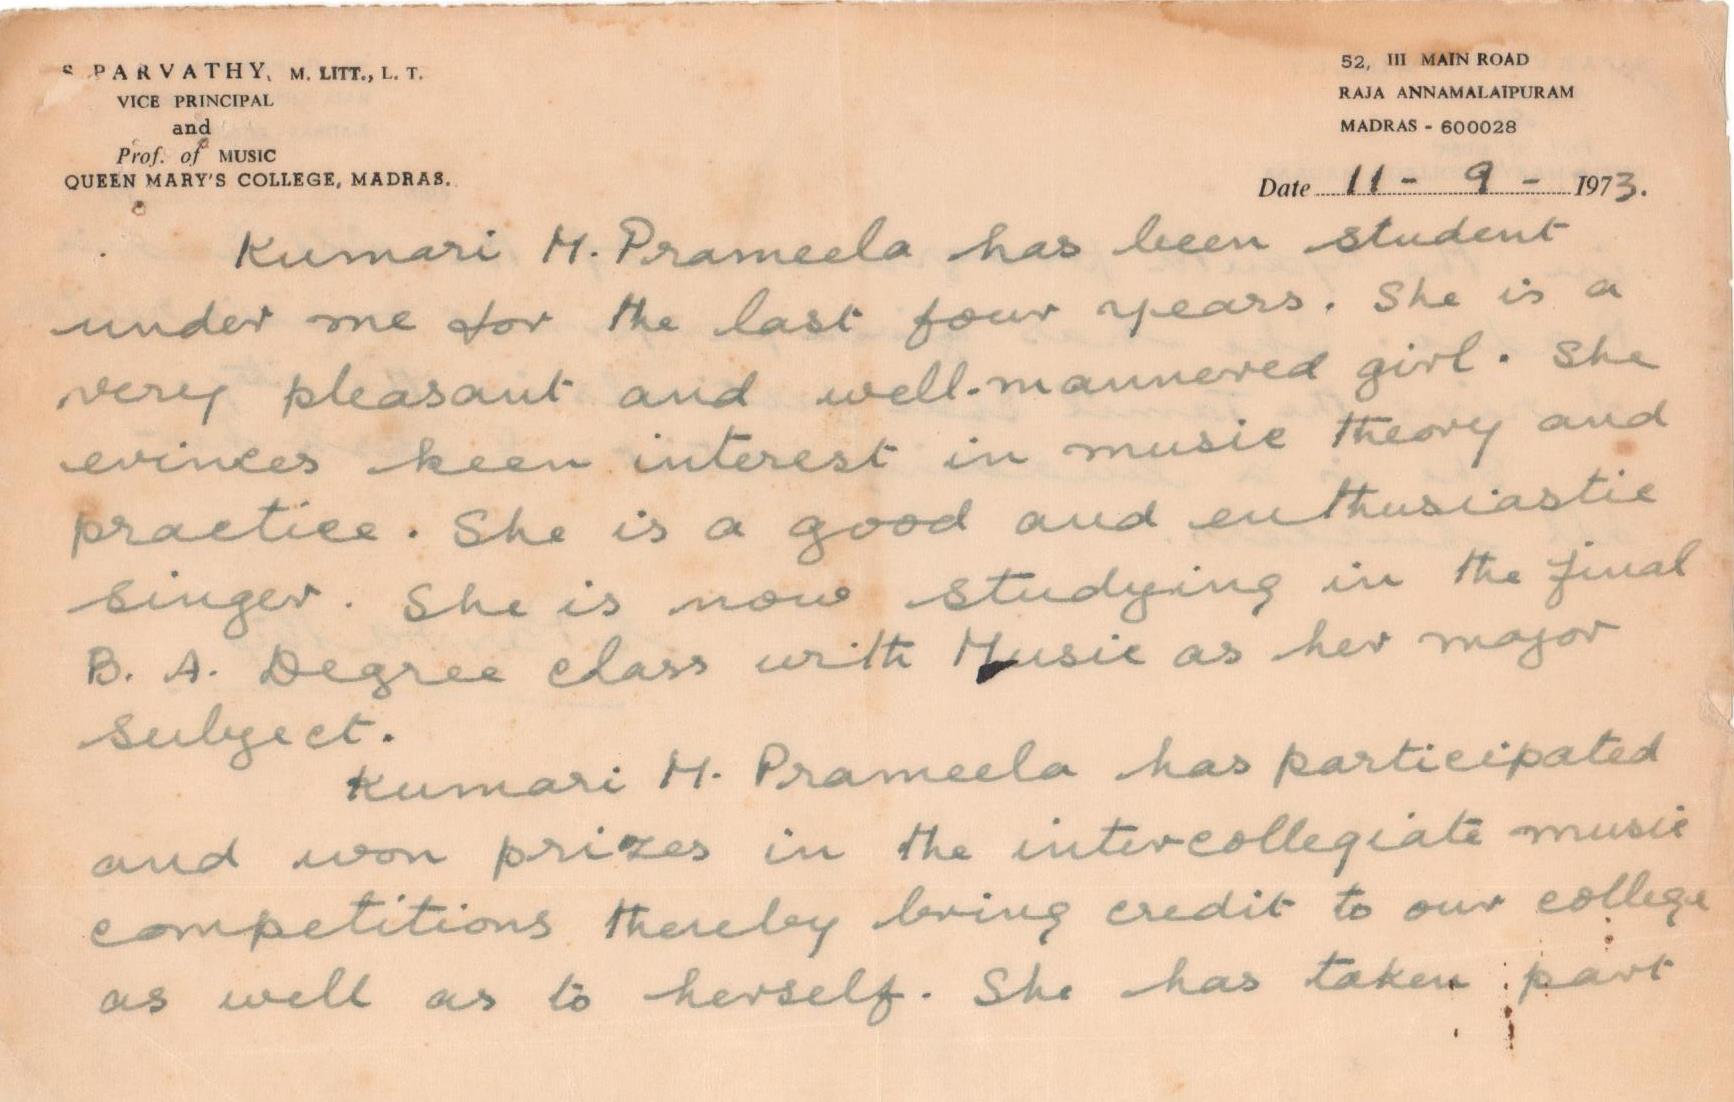 S. PARVATHY, M. LITT., L. T.
VICE PRINCIPAL
and
Prof. of MUSIC
QUEEN MARY'S COLLEGE, MADRAS.
52, III MAIN ROAD
RAJA ANNAMALAIPURAM
MADRAS - 600028
Date 11 - 9 - 1973.
Kumari M. Prameela has been student
under me for the last four years. She is a
very pleasant and well-mannered girl. She
evinces keen interest in music theory and
practice. She is a good and enthusiastic
singer. She is now studying in the final
B. A. Degree class with Music as her major
subject.
Kumari M. Prameela has participated
and won prizes in the intercollegiate music
competitions thereby bring credit to our college
as well as to herself. She has taken part